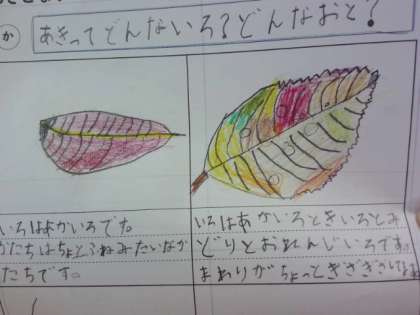 か
あきってどんないろ?どんなおと?
いろはあかいろです。
かたちはちょっとふねみたいなか
たちです。
いろはあかいろときいろとみ
どりとおれんじいろです。
まわりがちょっとぎざぎざ